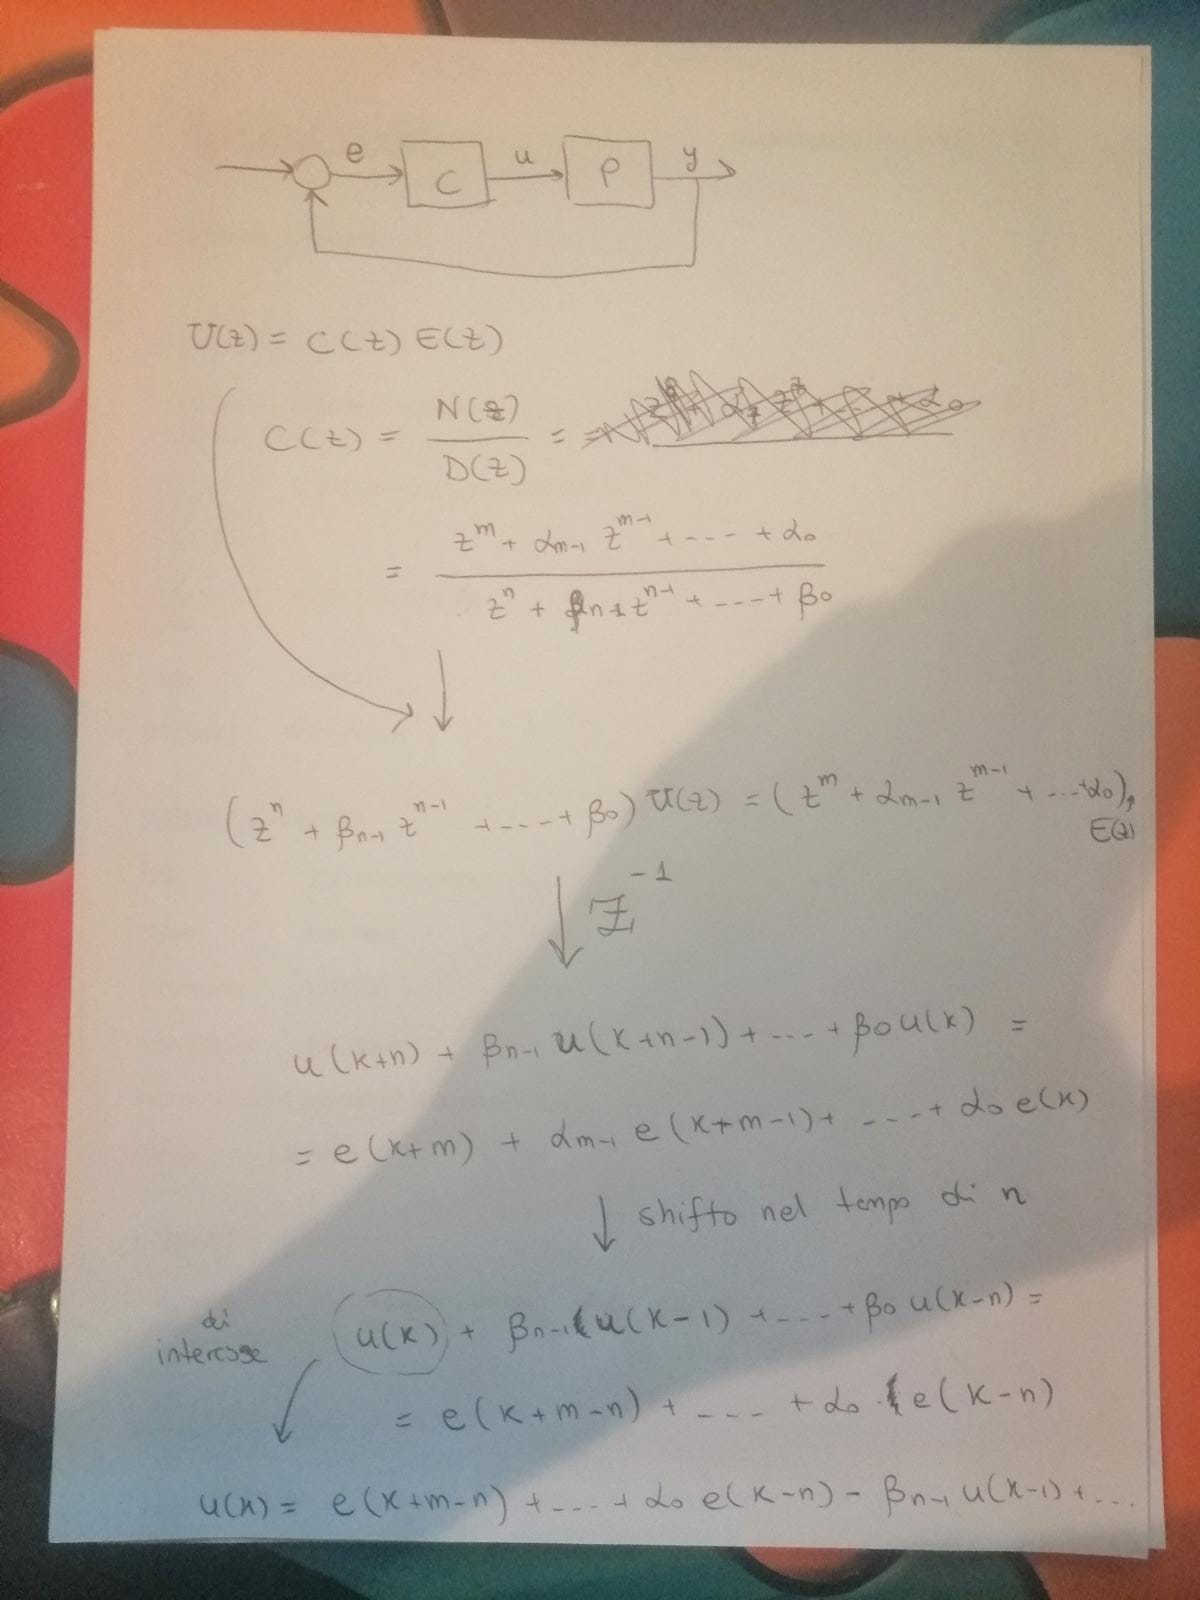 e C u P y
U(z) = C(z) E(z)
C(z) = N(z) / D(z) =
= z^m + α_{m-1} z^{m-1} + ---- + α_0 / z^n + β_{n-1} z^{n-1} + ---- + β_0
(z^n + β_{n-1} z^{n-1} + ---- + β_0) U(z) = (z^m + α_{m-1} z^{m-1} + ---- + α_0),
E(z)
Z^{-1}
u(k+n) + β_{n-1} u(k+n-1) + --- + β_0 u(k) =
= e(k+m) + α_{m-1} e(k+m-1) + ---- + α_0 e(k)
shifto nel tempo di n
di
interesse
u(k) + β_{n-1} u(k-1) + ---- + β_0 u(k-n) =
= e(k+m-n) + ---- + α_0 e(k-n)
u(k) = e(k+m-n) + ---- + α_0 e(k-n) - β_{n-1} u(k-1) + ...